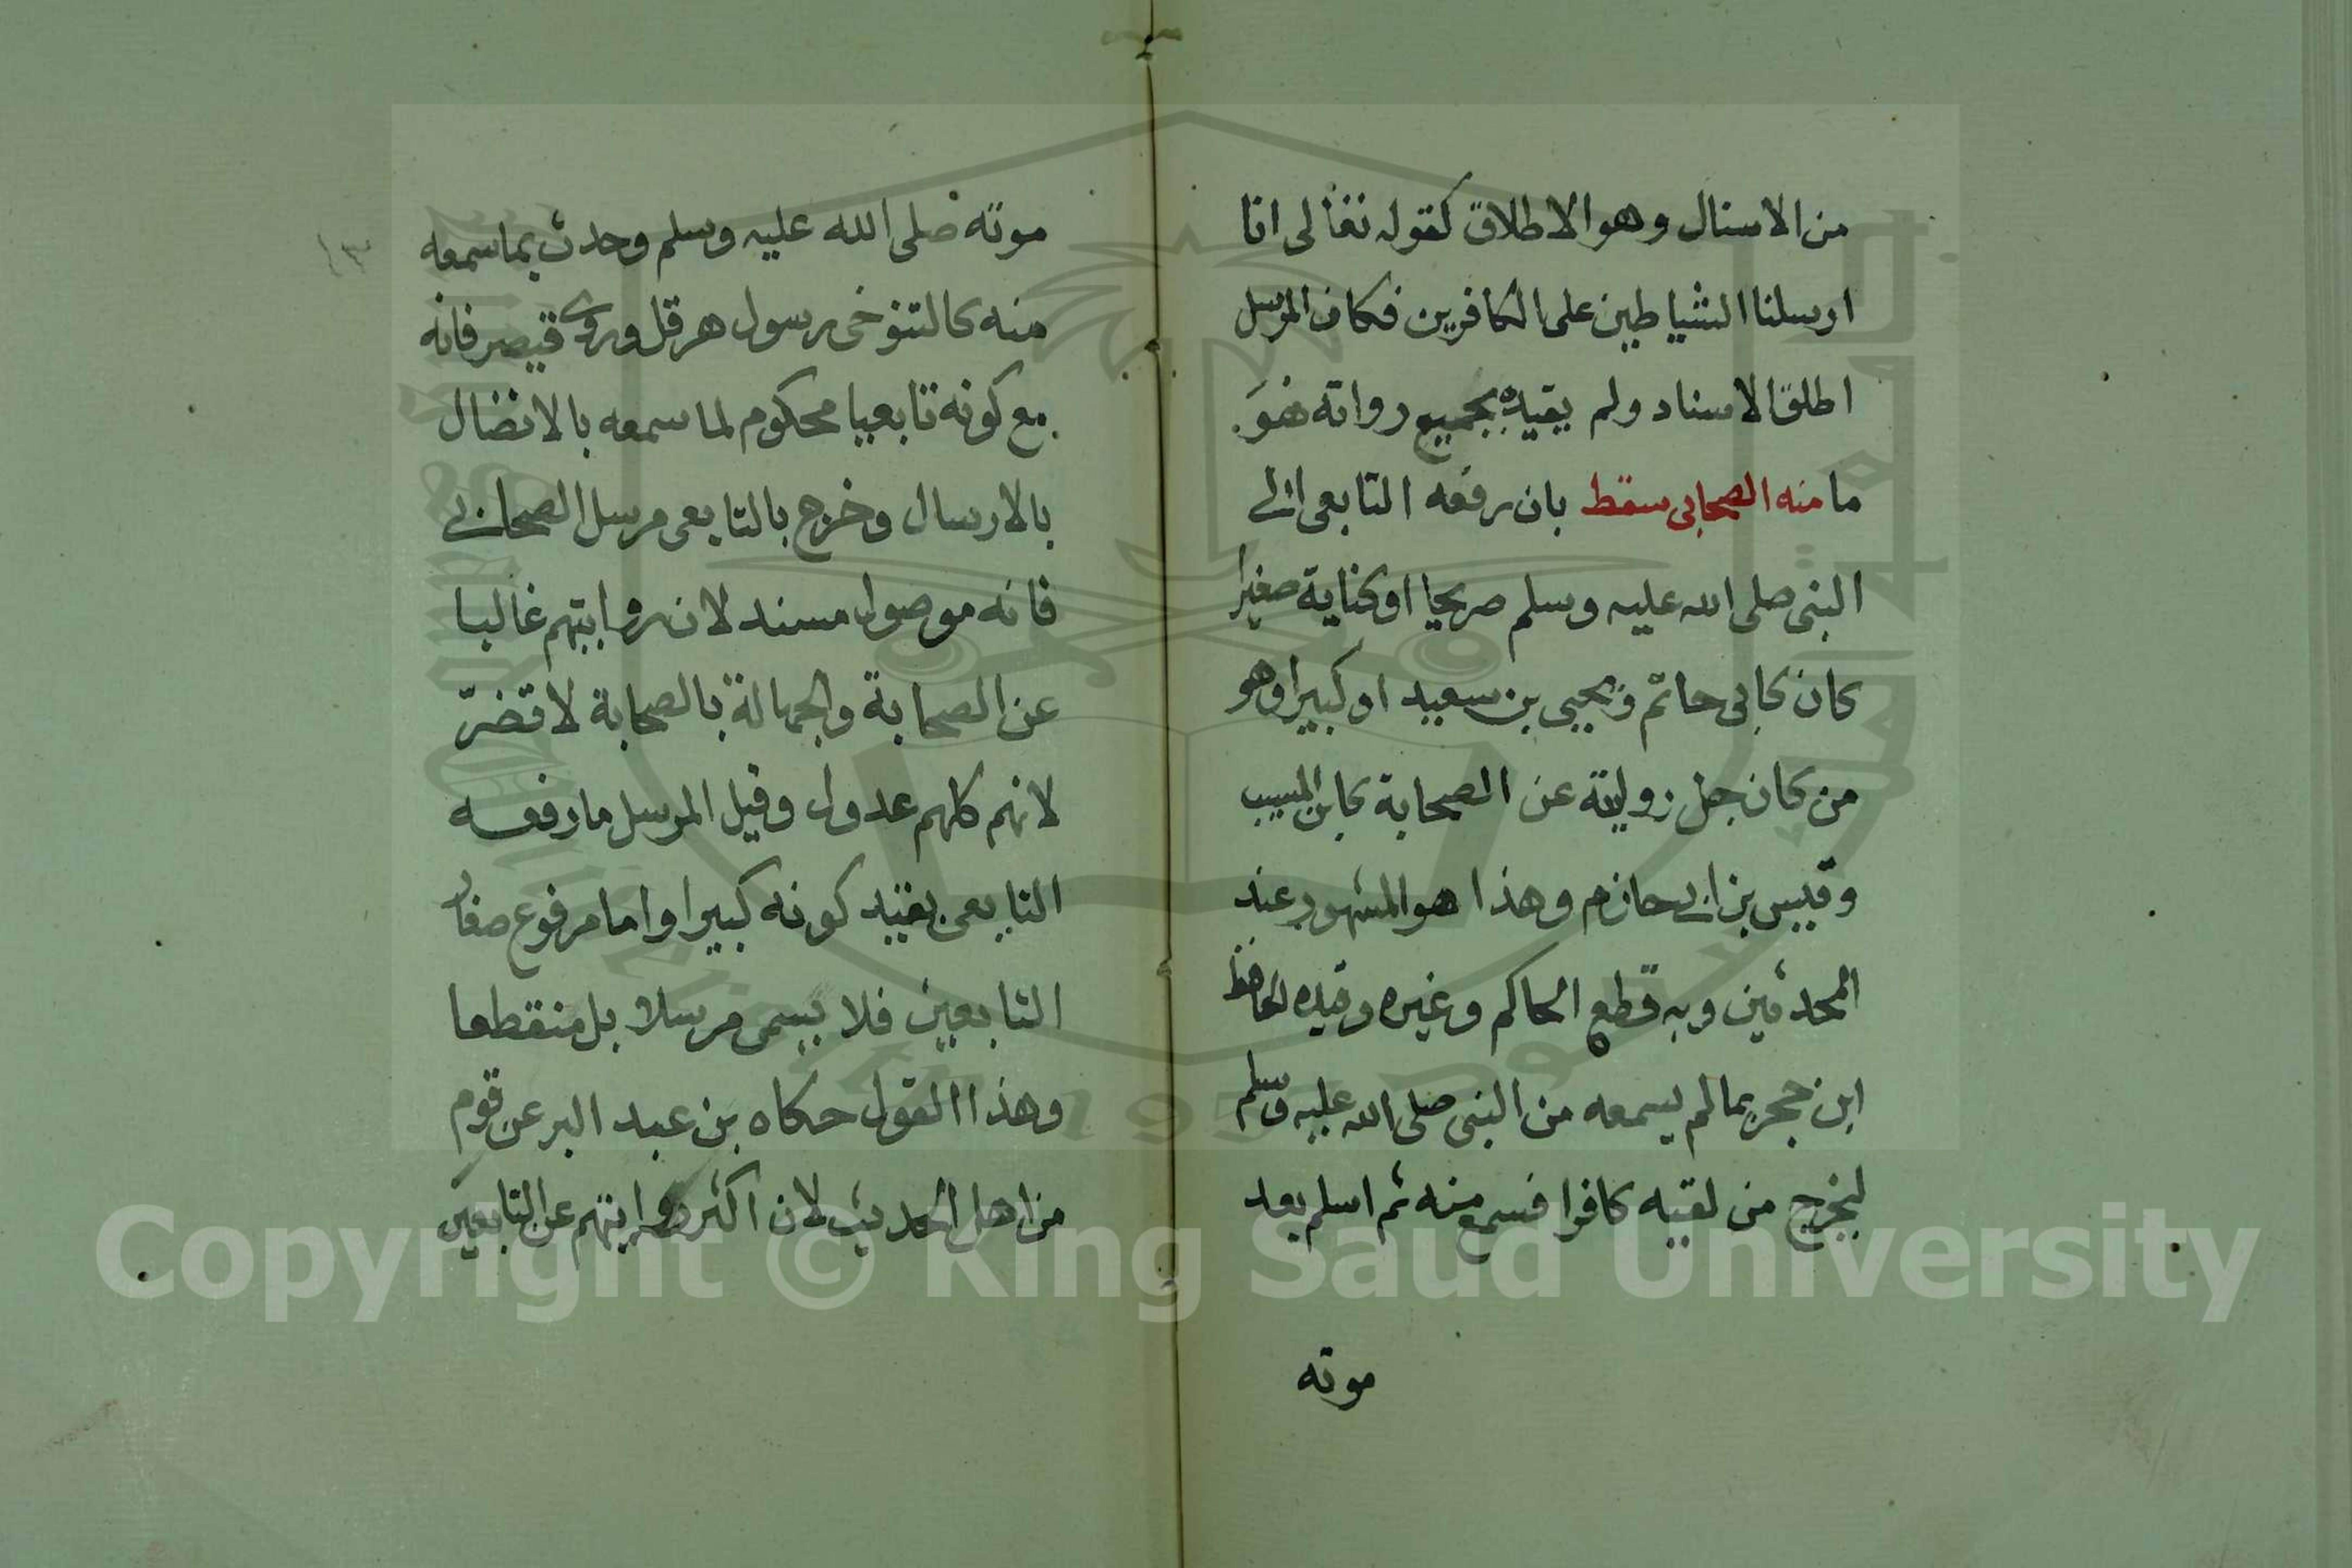 من الاسنال وهو الاطلاق كقوله تعالى انا
ارسلنا الشياطين على الكافرين فكان المرسل
اطلق الاسناد ولم يقيده بجميع رواته فهو
ما منه الصحابي سقط بان رفعه التابعي الى
النبي صلى الله عليه وسلم صريحا او كناية صغيرا
كان كابي حاتم ويحيى بن سعيد او كبيرا وهو
من كان جل روايته عن الصحابة كابن المسيب
وقيس بن ابي حازم وهذا هو المشهور عند
المحدثين وبه قطع الحاكم وغيره وقيده الحافظ
ابن حجر بما لم يسمعه من النبي صلى الله عليه وسلم
ليخرج من لقيه كافرا فسمع منه ثم اسلم بعد
موته
١٣
موته صلى الله عليه وسلم وحدث بما سمعه
منه كالتنوخي رسول هرقل وروى قيصر فانه
مع كونه تابعيا محكوم لما سمعه بالاتصال
بالارسال وخرج بالتابعي مرسل الصحابي
فانه موصول مسند لان روايتهم غالبا
عن الصحابة والجهالة بالصحابة لا تضرّ
لانهم كلهم عدول وقيل المرسل ما رفعه
التابعي بقيد كونه كبيرا واما مرفوع صغار
التابعين فلا يسمى مرسلا بل منقطعا
وهذا القول حكاه بن عبد البر عن قوم
من اهل الحديث لان اكثر روايتهم عن التابعين
Copyright © King Saud University